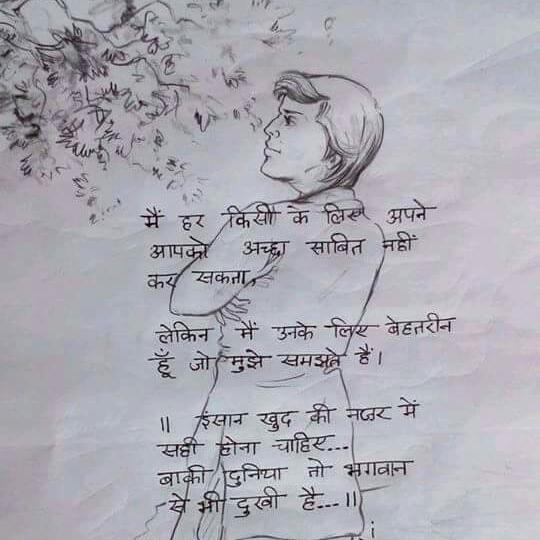 मैं हर किसी के लिए अपने
आपको अच्छा साबित नहीं
कर सकता,
लेकिन मैं उनके लिए बेहतरीन
हूँ जो मुझे समझते हैं।
॥ इंसान खुद की नजर में
सही होना चाहिए...
बाकी दुनिया तो भगवान
से भी दुखी है...॥